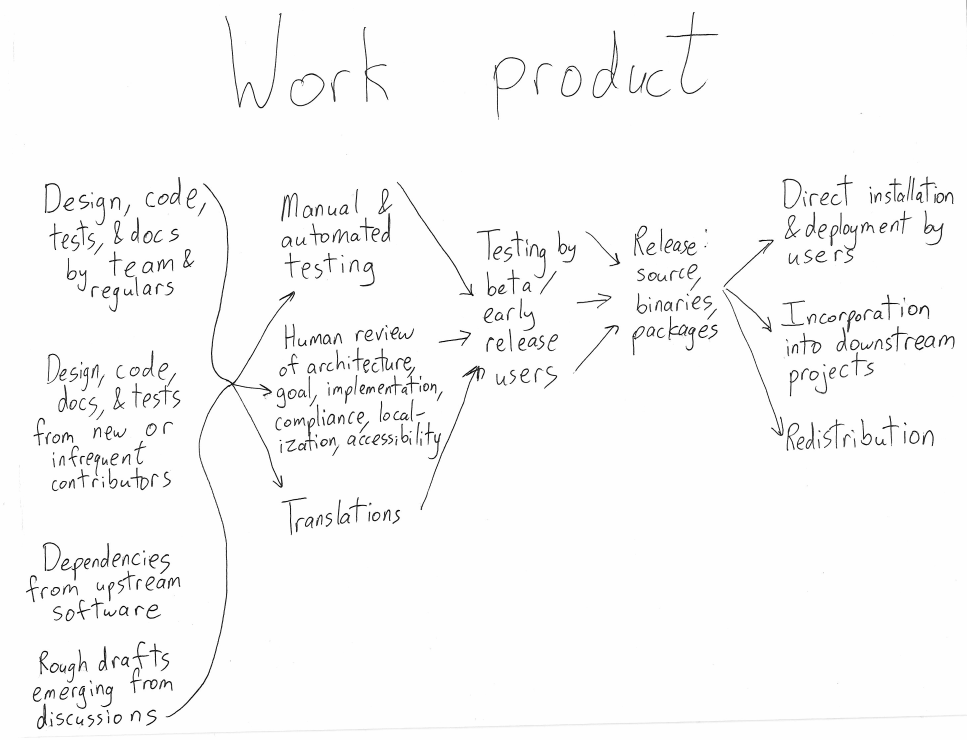 Work product
Design, code,
tests, & docs
by team &
regulars
Design, code,
docs, & tests
from new or
infrequent
contributors
Dependencies
from upstream
software
Rough drafts
emerging from
discussions
Manual &
automated
testing
Human review
of architecture,
goal, implementation,
compliance, local-
ization, accessibility
Translations
Testing by
beta/
early
release
users
Release:
source,
binaries,
packages
Direct installation
& deployment by
users
Incorporation
into downstream
projects
Redistribution